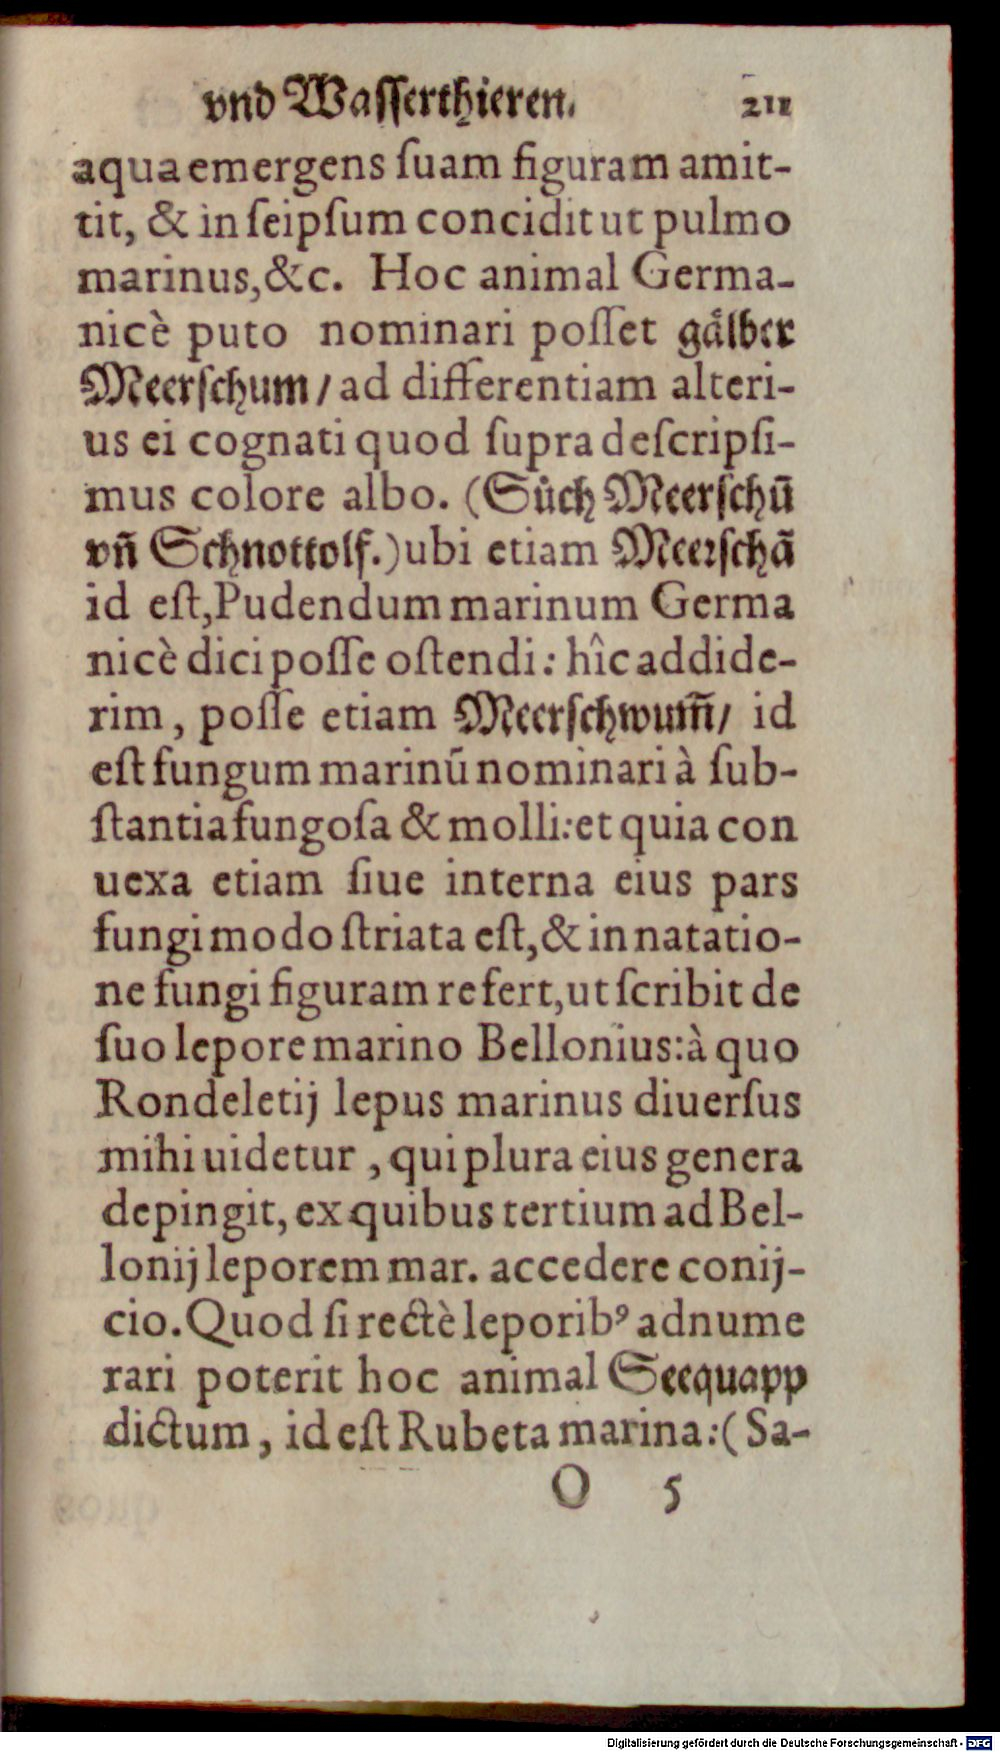 vnd Wasserthieren. 211
aqua emergens ſuam figuram amit-
tit, & in ſeipſum concidit ut pulmo
marinus, &c. Hoc animal Germa-
nicè puto nominari poſſet gaͤlber
Meerſchum / ad differentiam alteri-
us ei cognati quod ſupra deſcripſi-
mus colore albo. (Suͦch Meerſchū
vñ Schnottolf.) ubi etiam Meerſchā
id eſt, Pudendum marinum Germa
nicè dici poſſe oſtendi: hîc addide-
rim, poſſe etiam Meerſchwum̃ / id
eſt fungum marinū nominari à ſub-
ſtantia fungoſa & molli: et quia con
uexa etiam ſiue interna eius pars
fungi modo ſtriata eſt, & in natatio-
ne fungi figuram refert, ut ſcribit de
ſuo lepore marino Bellonius: à quo
Rondeletij lepus marinus diuerſus
mihi uidetur, qui plura eius genera
depingit, ex quibus tertium ad Bel-
lonij leporem mar. accedere conij-
cio. Quod ſi rectè leporibꝰ adnume
rari poterit hoc animal Seequapp
dictum, id eſt Rubeta marina: (Sa-
O 5
Digitalisierung gefördert durch die Deutsche Forschungsgemeinschaft - DFG